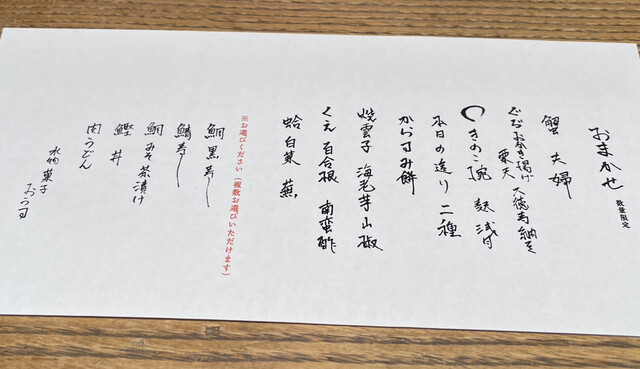 おまかせ
数量限定
蟹 夫婦
ぐじお吉き揚げ 大徳寺納豆
栗天
きのこ椀 麩 浅月
本日の造り 二種
からすみ餅
焼雲子 海老芋 山椒
くえ 百合根 南蛮酢
蛤 白菜 蕪
※お選びください(複数お選びいただけます)
鯛黒寿し
鯖寿し
鯛みそ茶漬け
鰹丼
肉うどん
水物 菓子
おうす